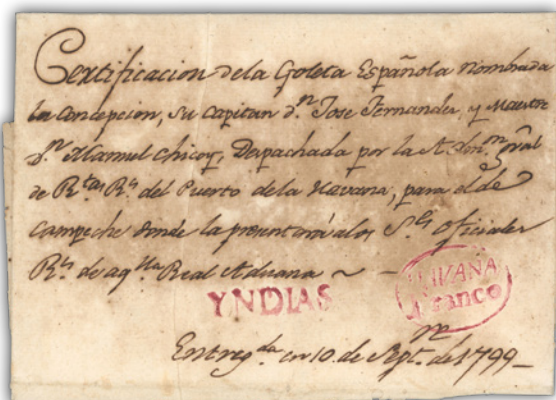 Certificacion de la Goleta Española Nombrada
la Concepcion, su Capitan d.n Jose Fernandez, y Maestre
d.n Manuel Chicoy, Despachada por la Adm.n gral
de R.tas R.s del Puerto de la Havana, para el de
Campeche donde la presentará a los S.es Oficiales
R.s de aq.lla Real Aduana ~
YNDIAS
HAVANA
franco
Entreg.da en 10 de Sept.re de 1799_